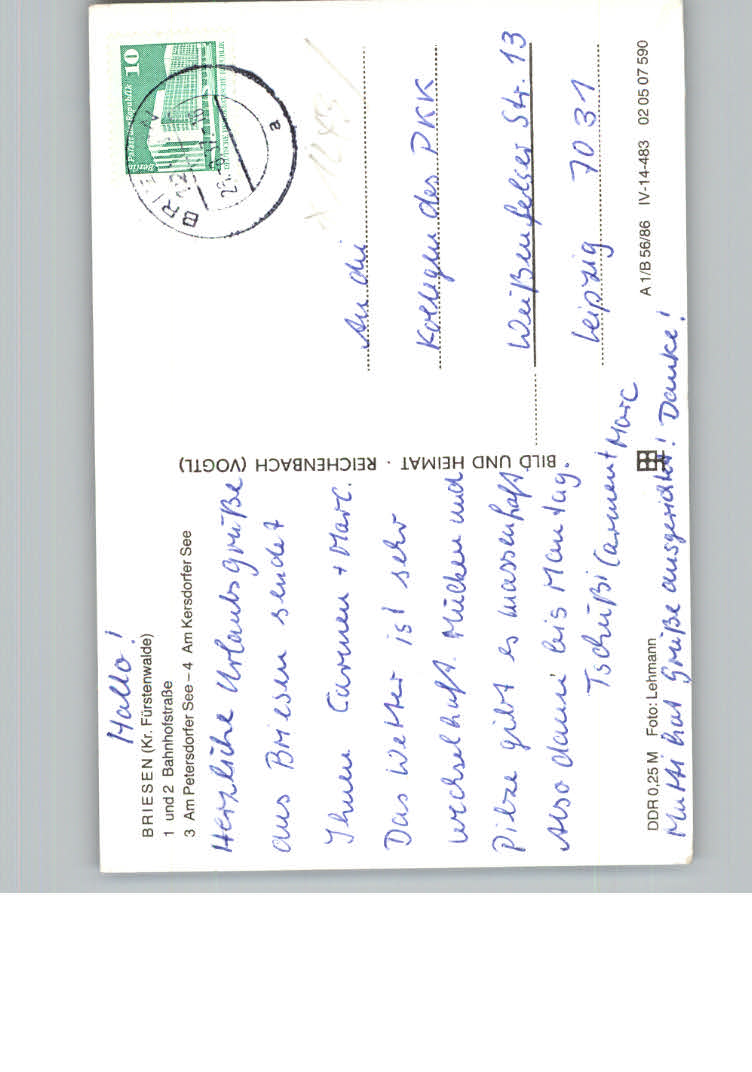 Hallo!
BRIESEN (Kr. Fürstenwalde)
1 und 2 Bahnhofstraße
3 Am Petersdorfer See – 4 Am Kersdorfer See
Herzliche Urlaubsgrüße
aus Briesen sendet
Ihnen Carmen + Marc.
Das Wetter ist sehr
wechselhaft. Mücken und
Pilze gibt es massenhaft
Also dann bis Montag.
Tschüßi Carmen + Marc
DDR 0,25 M Foto: Lehmann
Mutti hat Grüße ausgerichtet! Danke!
BILD UND HEIMAT · REICHENBACH (VOGTL)
10
Palast der Republik
Berlin
BRIESEN
a
An die
Kollegen des PKK
Weißenfelser Str. 13
Leipzig 7031
A 1/B 56/86 IV-14-483 02 05 07 590